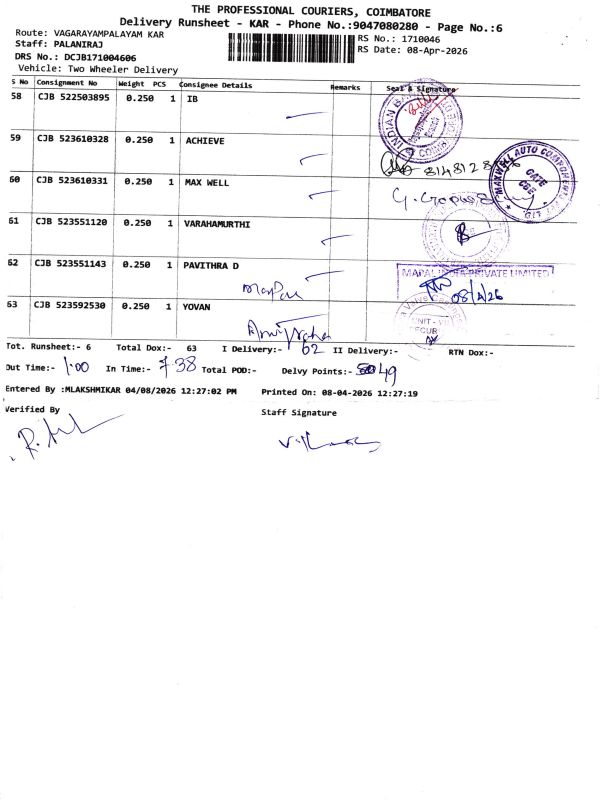 THE PROFESSIONAL COURIERS, COIMBATORE
Delivery Runsheet - KAR - Phone No.:9047080280 - Page No.:6
Route: VAGARAYAMPALAYAM KAR
RS No.: 1710046
Staff: PALANIRAJ
RS Date: 08-Apr-2026
DRS No.: DCJB171004606
Vehicle: Two Wheeler Delivery
S No Consignment No Weight PCS Consignee Details Remarks Seal & Signature
58 CJB 522503895 0.250 1 IB
59 CJB 523610328 0.250 1 ACHIEVE
60 CJB 523610331 0.250 1 MAX WELL
MAXWELL AUTO COMPONENT
GATE
61 CJB 523551120 0.250 1 VARAHAMURTHI
62 CJB 523551143 0.250 1 PAVITHRA D
MAPAL INDIA PRIVATE LIMITED
08/4/26
63 CJB 523592530 0.250 1 YOVAN
Tot. Runsheet:- 6 Total Dox:- 63 I Delivery:- 62 II Delivery:- RTN Dox:-
Out Time:- 1:00 In Time:- 7.38 Total POD:- Delvy Points:- 49
Entered By :MLAKSHMIKAR 04/08/2026 12:27:02 PM Printed On: 08-04-2026 12:27:19
Verified By Staff Signature